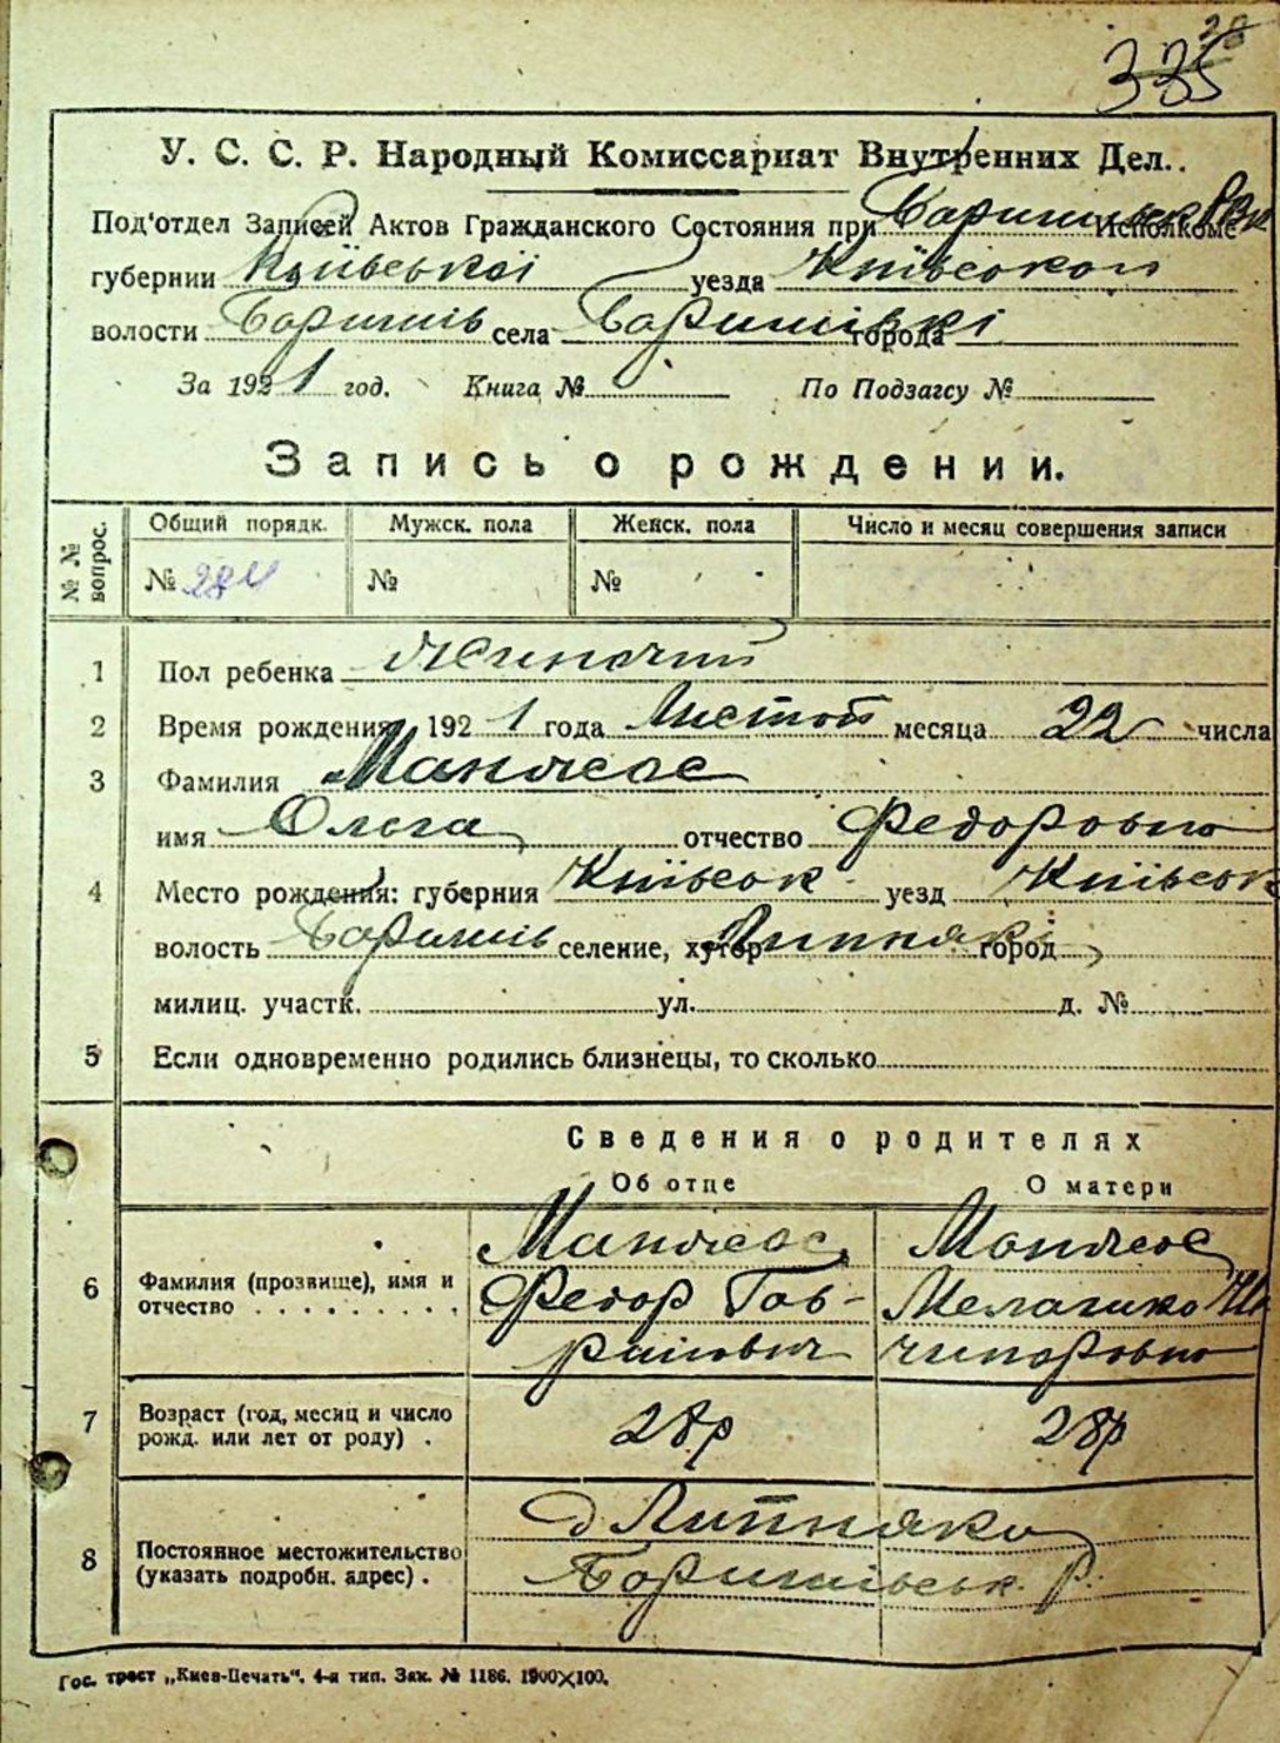 28
335
У. С. С. Р. Народный Комиссариат Внутренних Дел..
Под'отдел Записей Актов Гражданского Состояния при Исполкоме
губернии Київської уезда Київського
волости Баришів села Баришівкі города
За 1921 год. Книга № По Подзагсу №
Запись о рождении.
№ № вопрос. Общий порядк. Мужск. пола Женск. пола Число и месяц совершения записи
№ 284 № №
1 Пол ребенка Жиночий
2 Время рождения 1921 года Листоп месяца 22 числа
3 Фамилия Манжос
имя Ольга отчество Федоровна
4 Место рождения: губерния Київськ уезд Київськ
волость Баришів селение, хутор Липнякі город
милиц. участк. ул. д. №
5 Если одновременно родились близнецы, то сколько
Сведения о родителях
Об отце О матери
6 Фамилия (прозвище), имя и отчество Манжос Федор Гав-рилович Манжос Ничипоровна
7 Возраст (год, месяц и число рожд. или лет от роду) . 28р 28р
8 Постоянное местожительство (указать подробн. адрес) . Липняки
Баришівськ. р.
Гос. трест „Киев-Печать“. 4-я тип. Зак. № 1186. 1900×100.